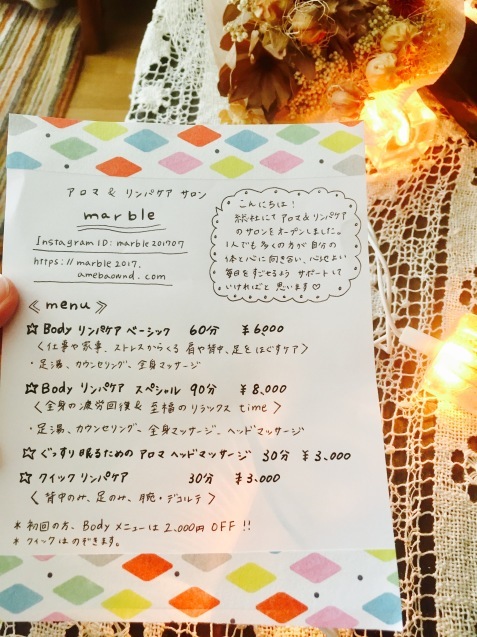 アロマ & リンパケア サロン
marble
Instagram ID: marble201707
https://marble2017.
amebaownd.com
こんにちは!
総社にて アロマ&リンパケア
のサロンをオープンしました。
1人でも多くの方が自分の
体と心に向き合い、心地よい
毎日をすごせるよう サポートして
いければと 思います♡
《menu》
☆Body リンパケア ベーシック 60分 ¥6000
〈仕事や家事、ストレスからくる 肩や背中、足をほぐすケア〉
・足湯、カウンセリング、全身マッサージ
☆Body リンパケア スペシャル 90分 ¥8,000
〈全身の疲労回復& 至福のリラックス time〉
・足湯、カウンセリング、全身マッサージ、ヘッドマッサージ
☆ぐっすり眠るための アロマ ヘッドマッサージ 30分 ¥3,000
☆クイック リンパケア 30分 ¥3,000
〈背中のみ、足のみ、腕・デコルテ〉
*初回の方、Body メニューは 2,000円 OFF!!
*クイックはのぞきます。